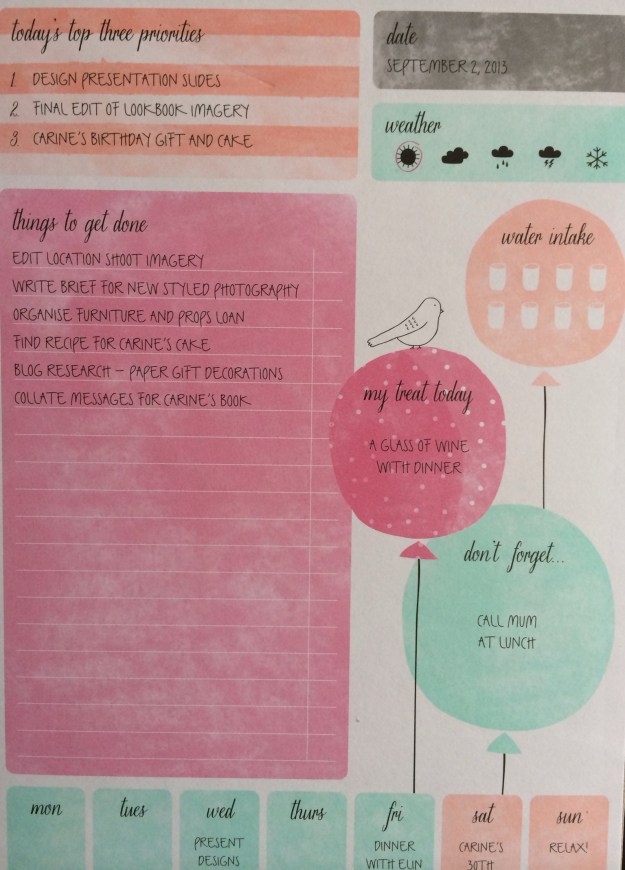 today's top three priorities
1. DESIGN PRESENTATION SLIDES
2. FINAL EDIT OF LOOKBOOK IMAGERY
3. CARINE'S BIRTHDAY GIFT AND CAKE
date
SEPTEMBER 2, 2013
weather
things to get done
EDIT LOCATION SHOOT IMAGERY
WRITE BRIEF FOR NEW STYLED PHOTOGRAPHY
ORGANISE FURNITURE AND PROPS LOAN
FIND RECIPE FOR CARINE'S CAKE
BLOG RESEARCH – PAPER GIFT DECORATIONS
COLLATE MESSAGES FOR CARINE'S BOOK
water intake
my treat today
A GLASS OF WINE
WITH DINNER
don't forget...
CALL MUM
AT LUNCH
mon
tues
wed
PRESENT
DESIGNS
thurs
fri
DINNER
WITH ELIN
sat
CARINE'S
30TH
sun
RELAX!